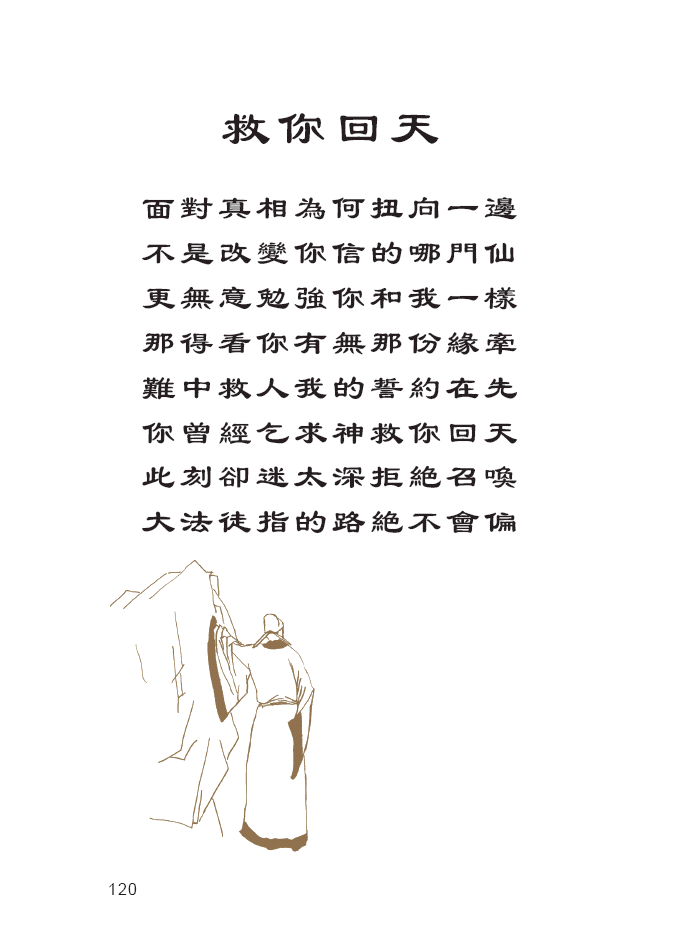 救你回天
面對真相為何扭向一邊
不是改變你信的哪門仙
更無意勉強你和我一樣
那得看你有無那份緣牽
難中救人我的誓約在先
你曾經乞求神救你回天
此刻卻迷太深拒絕召喚
大法徒指的路絕不會偏
120